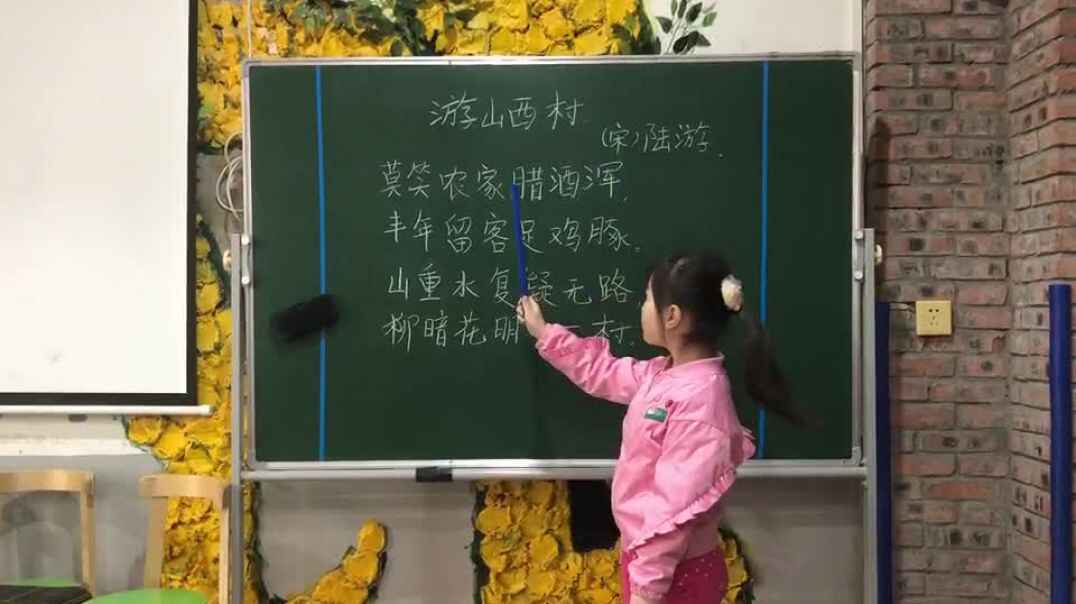 游山西村
(宋)陆游.
莫笑农家腊酒浑,
丰年留客足鸡豚。
山重水复疑无路
柳暗花明 村.